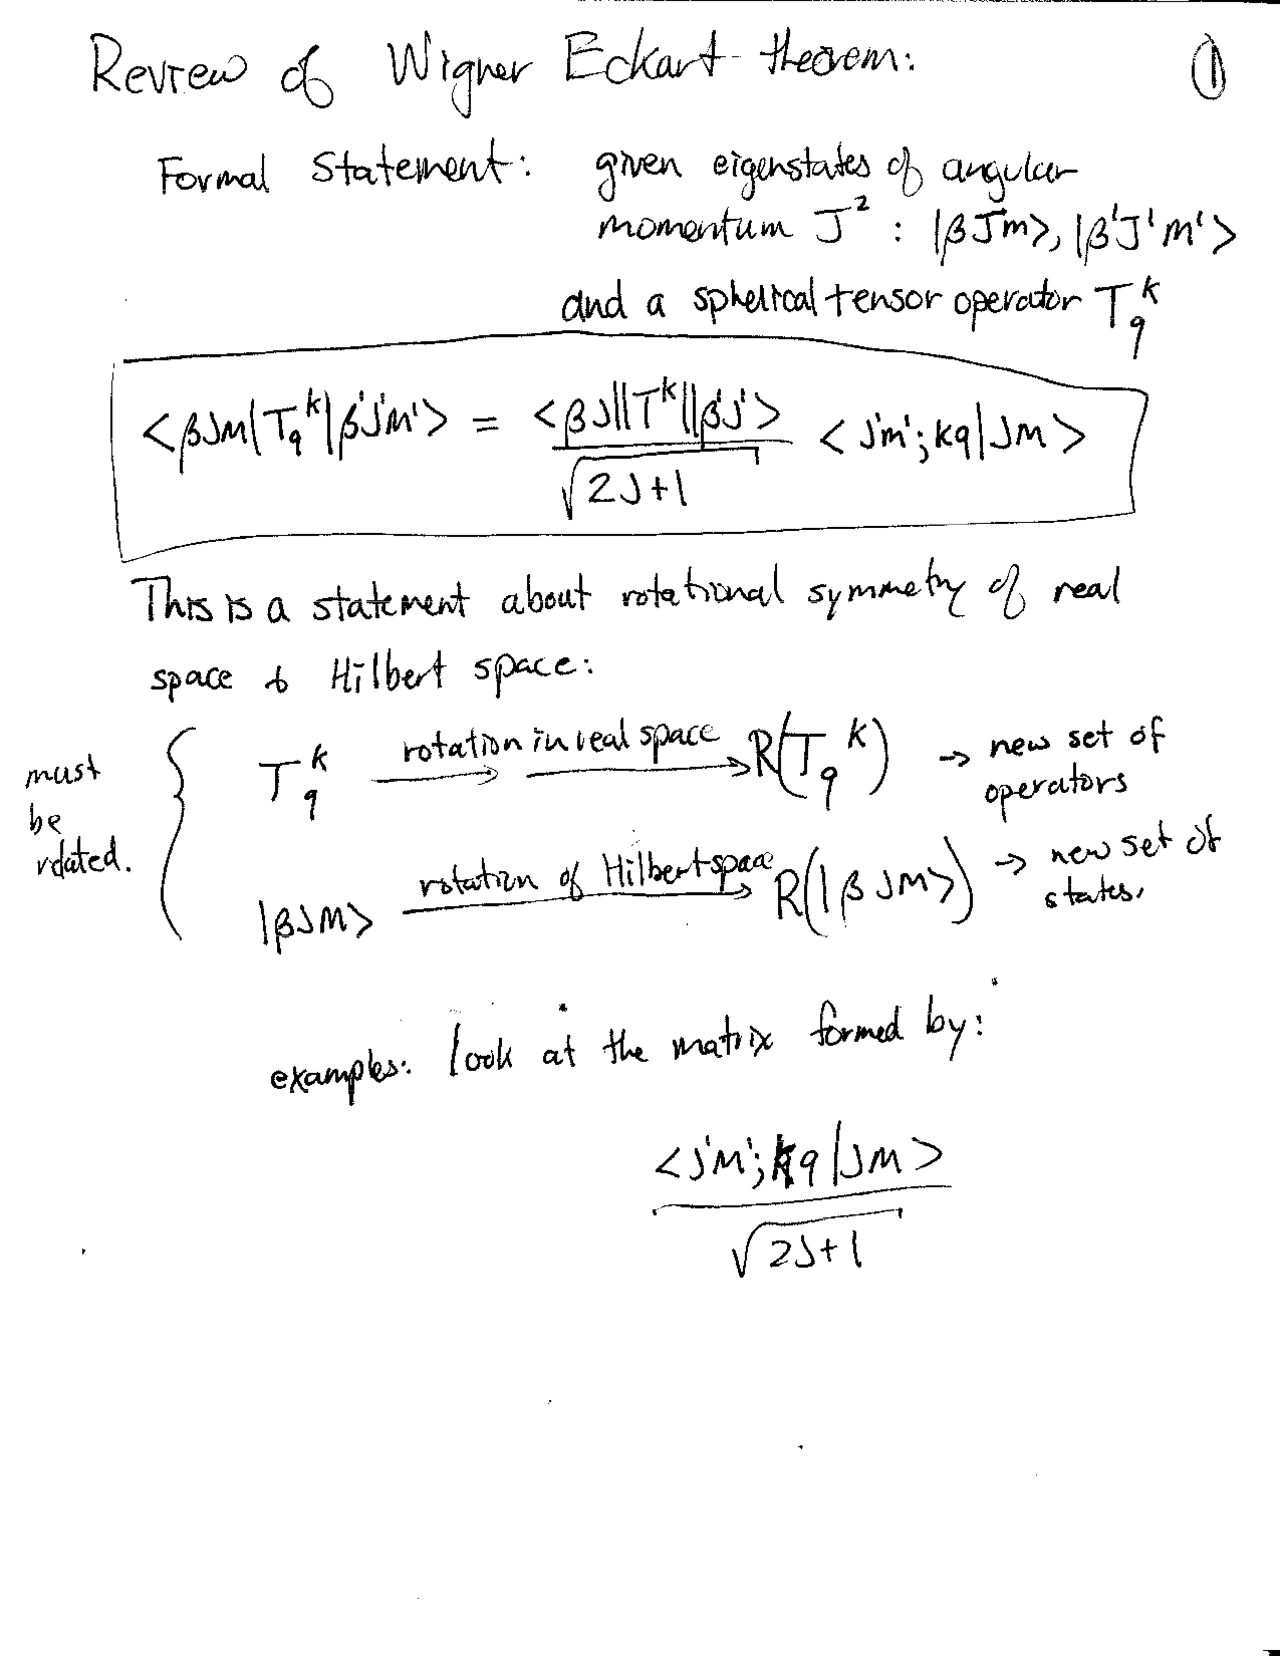 Review of Wigner Eckart theorem:
①
Formal Statement: given eigenstates of angular
momentum J² : |βJm>, |β'J'm'>
and a spherical tensor operator T_q^k
<βJM|T_q^k|β'J'M'> = <βJ||T^k||β'J'> / √(2J+1) <J'm';kq|JM>
This is a statement about rotational symmetry of real
space & Hilbert space:
must
be
related.
T_q^k rotation in real space → R(T_q^k) → new set of
operators
|βJM> rotation of Hilbert space → R(|βJM>) → new set of
states.
examples: look at the matrix formed by:
<J'M';kq|JM>
√(2J+1)